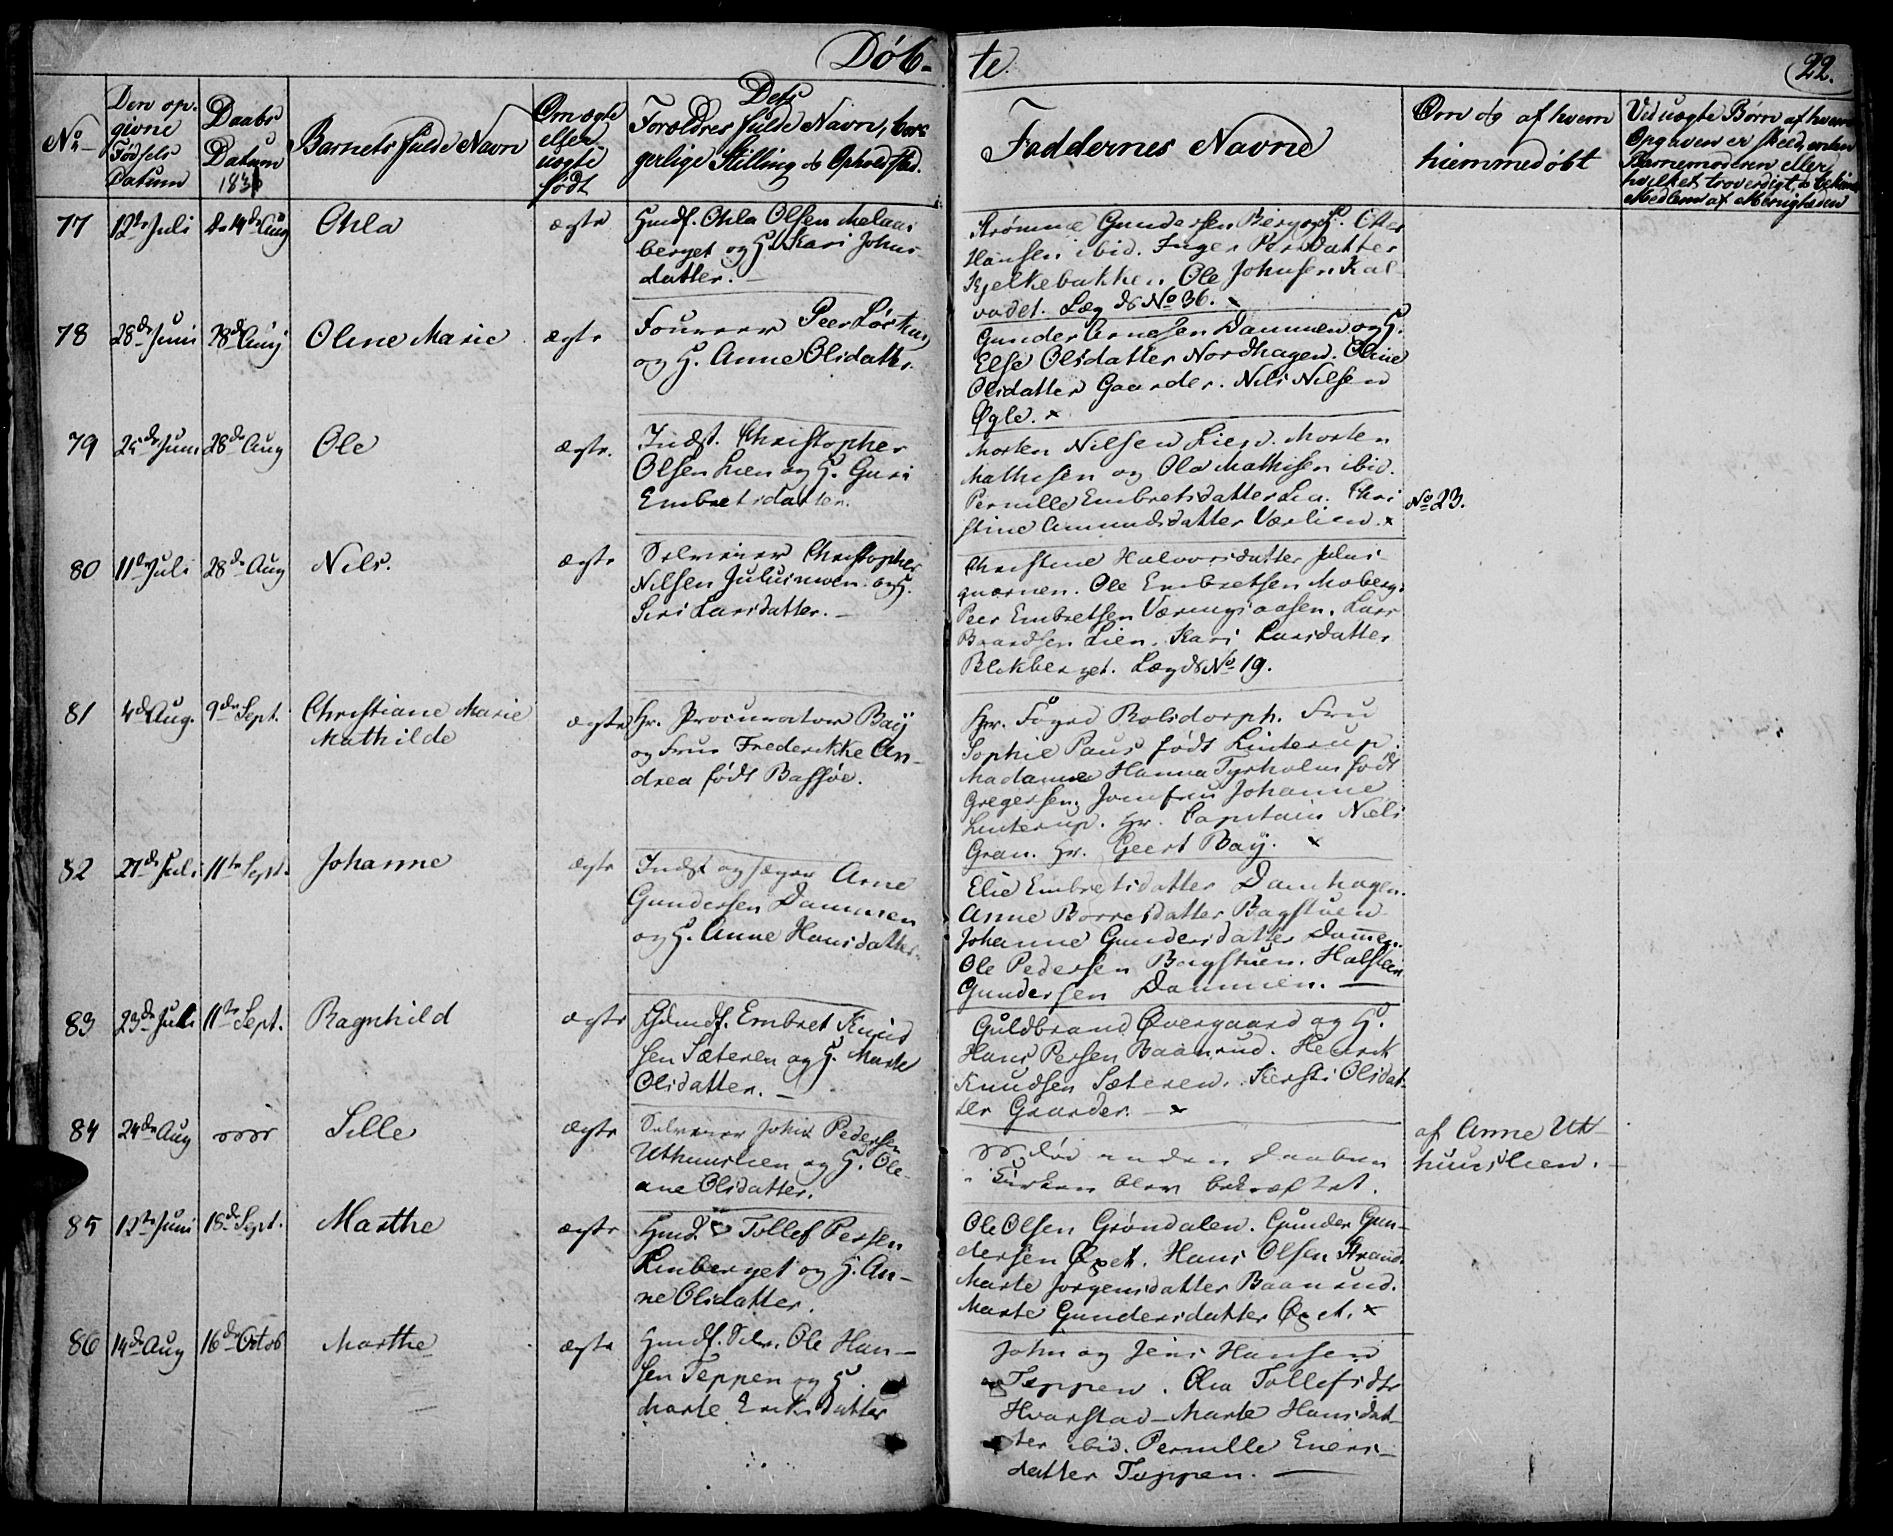 Døb-
te.
22.
No
Den op-
givne
Fødsels
Datum
Daabs
Datum
183
Barnets fulde Navn
Om ægte
eller
uægte
født
Dets
Forældres fulde Navn, bor-
gerlige Stilling & Opholdsted.
Faddernes Navne
Om og af hvem
hiemmedøbt
Ved uægte Børn af hvem
Opgaven er skeed, enten
Barnemoderen eller
hvilket troværdigt, & bekient
Medlem af Menigheden
77
12te Juli
14de Aug
Ohla
ægte
Huusf. Ohla Olsen Melaas
berget og H. Kari Johns-
datter. —
Hansen ibid. Inger Persdatter
Kjelkebakken Ole Johnsen Kal-
vadet. Læg ds No 36.
78
28de Juni
28de Aug
Oline Marie
ægte
Foureer Peer
og H. Anne Olsdatter.
Gunder Arnesen Dammen og H.
Else Olsdatter Nordhagen. Oline
Olsdatter Gaarder. Nils Nilsen
Øgle. x
79
25de Juni
28de Aug
Ole
ægte.
Indst. Christopher
Olsen Lien og H. Guri
Embretsdatter.
Morten Nilsen Lien. Morten
Mathesen og Ola Mathisen ibid.
Pernille Embretsdatter Lia. Chri
stine Amundsdatter Værlien. x
No 23.
80
11te Juli
28de Aug
Nils.
ægte
Selveier Christopher
Nilsen Juluimoen og H.
Siri Larsdatter. —
Christine Halvorsdatter Julus-
quærnen. Ole Embretsen Moberg.
Peer Embretsen Væringsaasen. Lars
Baardsen Lien. Kari Larsdatter
Blekberget. Læg ds No 19.
81
4de Aug.
9de Sept.
Christiane Marie
Mathilde
ægte
Hr. Procurator Baÿ
og Frue Frederikke An-
drea født Bassøe.
Hr. Foged Rolsdorph. Fru
Sophie Paus født Linterup.
Madamme Hanna Tyrholm født
Gregersen, Jomfru Johanne
Linterup. Hr. Capitain Niels
Gran. Hr. Geert Baÿ. x
82
27de Juli
11te Sept.
Johanne
ægte
Indst og Jæger Arne
Gundersen Dammen
og H. Anne Hansdatter.
Elie Embretsdatter Damhagen.
Anne Borresdatter Bagstuen
Johanne Gundersdatter Dam̅en.
Ole Pedersen Bagstuen. Halsten
Gundersen Dammen. —
83
23de Juli
11te Sept.
Ragnhild
ægte
Huusf. Embret Knud
sen Sæteren og H. Marte
Olsdatter. —
Guldbrand Øvergaard og H.
Hans Persen Baanrud. Henrik
Knudsen Sæteren. Kersti Olsdat
ter Gaarder. — x
84
24de Aug
Sille
ægte
Selveier John Pedersen
Uthuuslien og H. Ole-
ane Olsdatter.
død inden Daaben
i Kirken blev bekræftet.
af Anne Ut-
huuslien. —
85
12te Juni
18de Sept.
Marthe
ægte
Huusf. Tollef Persen
Linberget og H. An-
ne Olsdatter.
Ole Olsen Grøndalen. Gunder Gun-
dersen Øxet. Hans Olsen Strand.
Marte Jørgensdatter Baanrud.
Marte Gundersdatter Øxet. x
86
14de Aug
16de Octob
Marthe
ægte
Huusf. Selv. Ole Han-
sen Teppen og H.
Marte Eriksdatter
John og Jens Hansen
Teppen. Olea Tollefsdtr
Hvarstad — Marte Hansdat-
ter ibid. Pernille Eners-
datter Teppen. —